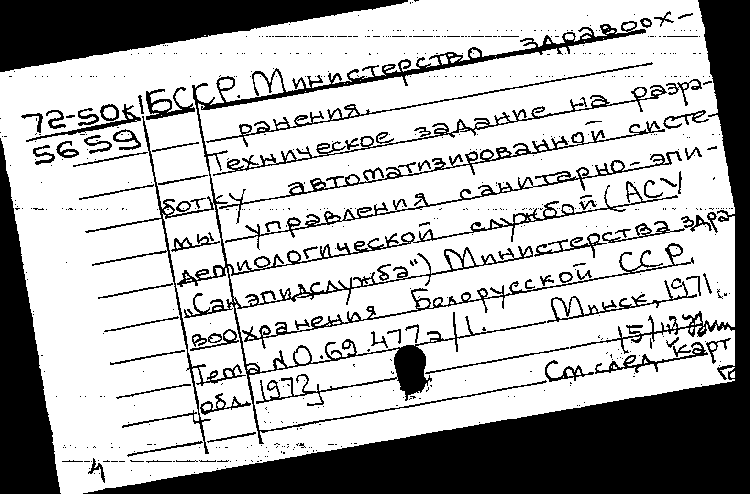 72-50к БССР. Министерство здравоох-
5659 ранения.
Техническое задание на разра-
ботку автоматизированной систе-
мы управления санитарно-эпи-
демиологической службой (АСУ
„Санэпидслужба") Министерства здра-
воохранения Белорусской ССР.
Тема №0.69.477а/1. Минск, 1971
[обл. 1972].
См. след. карт